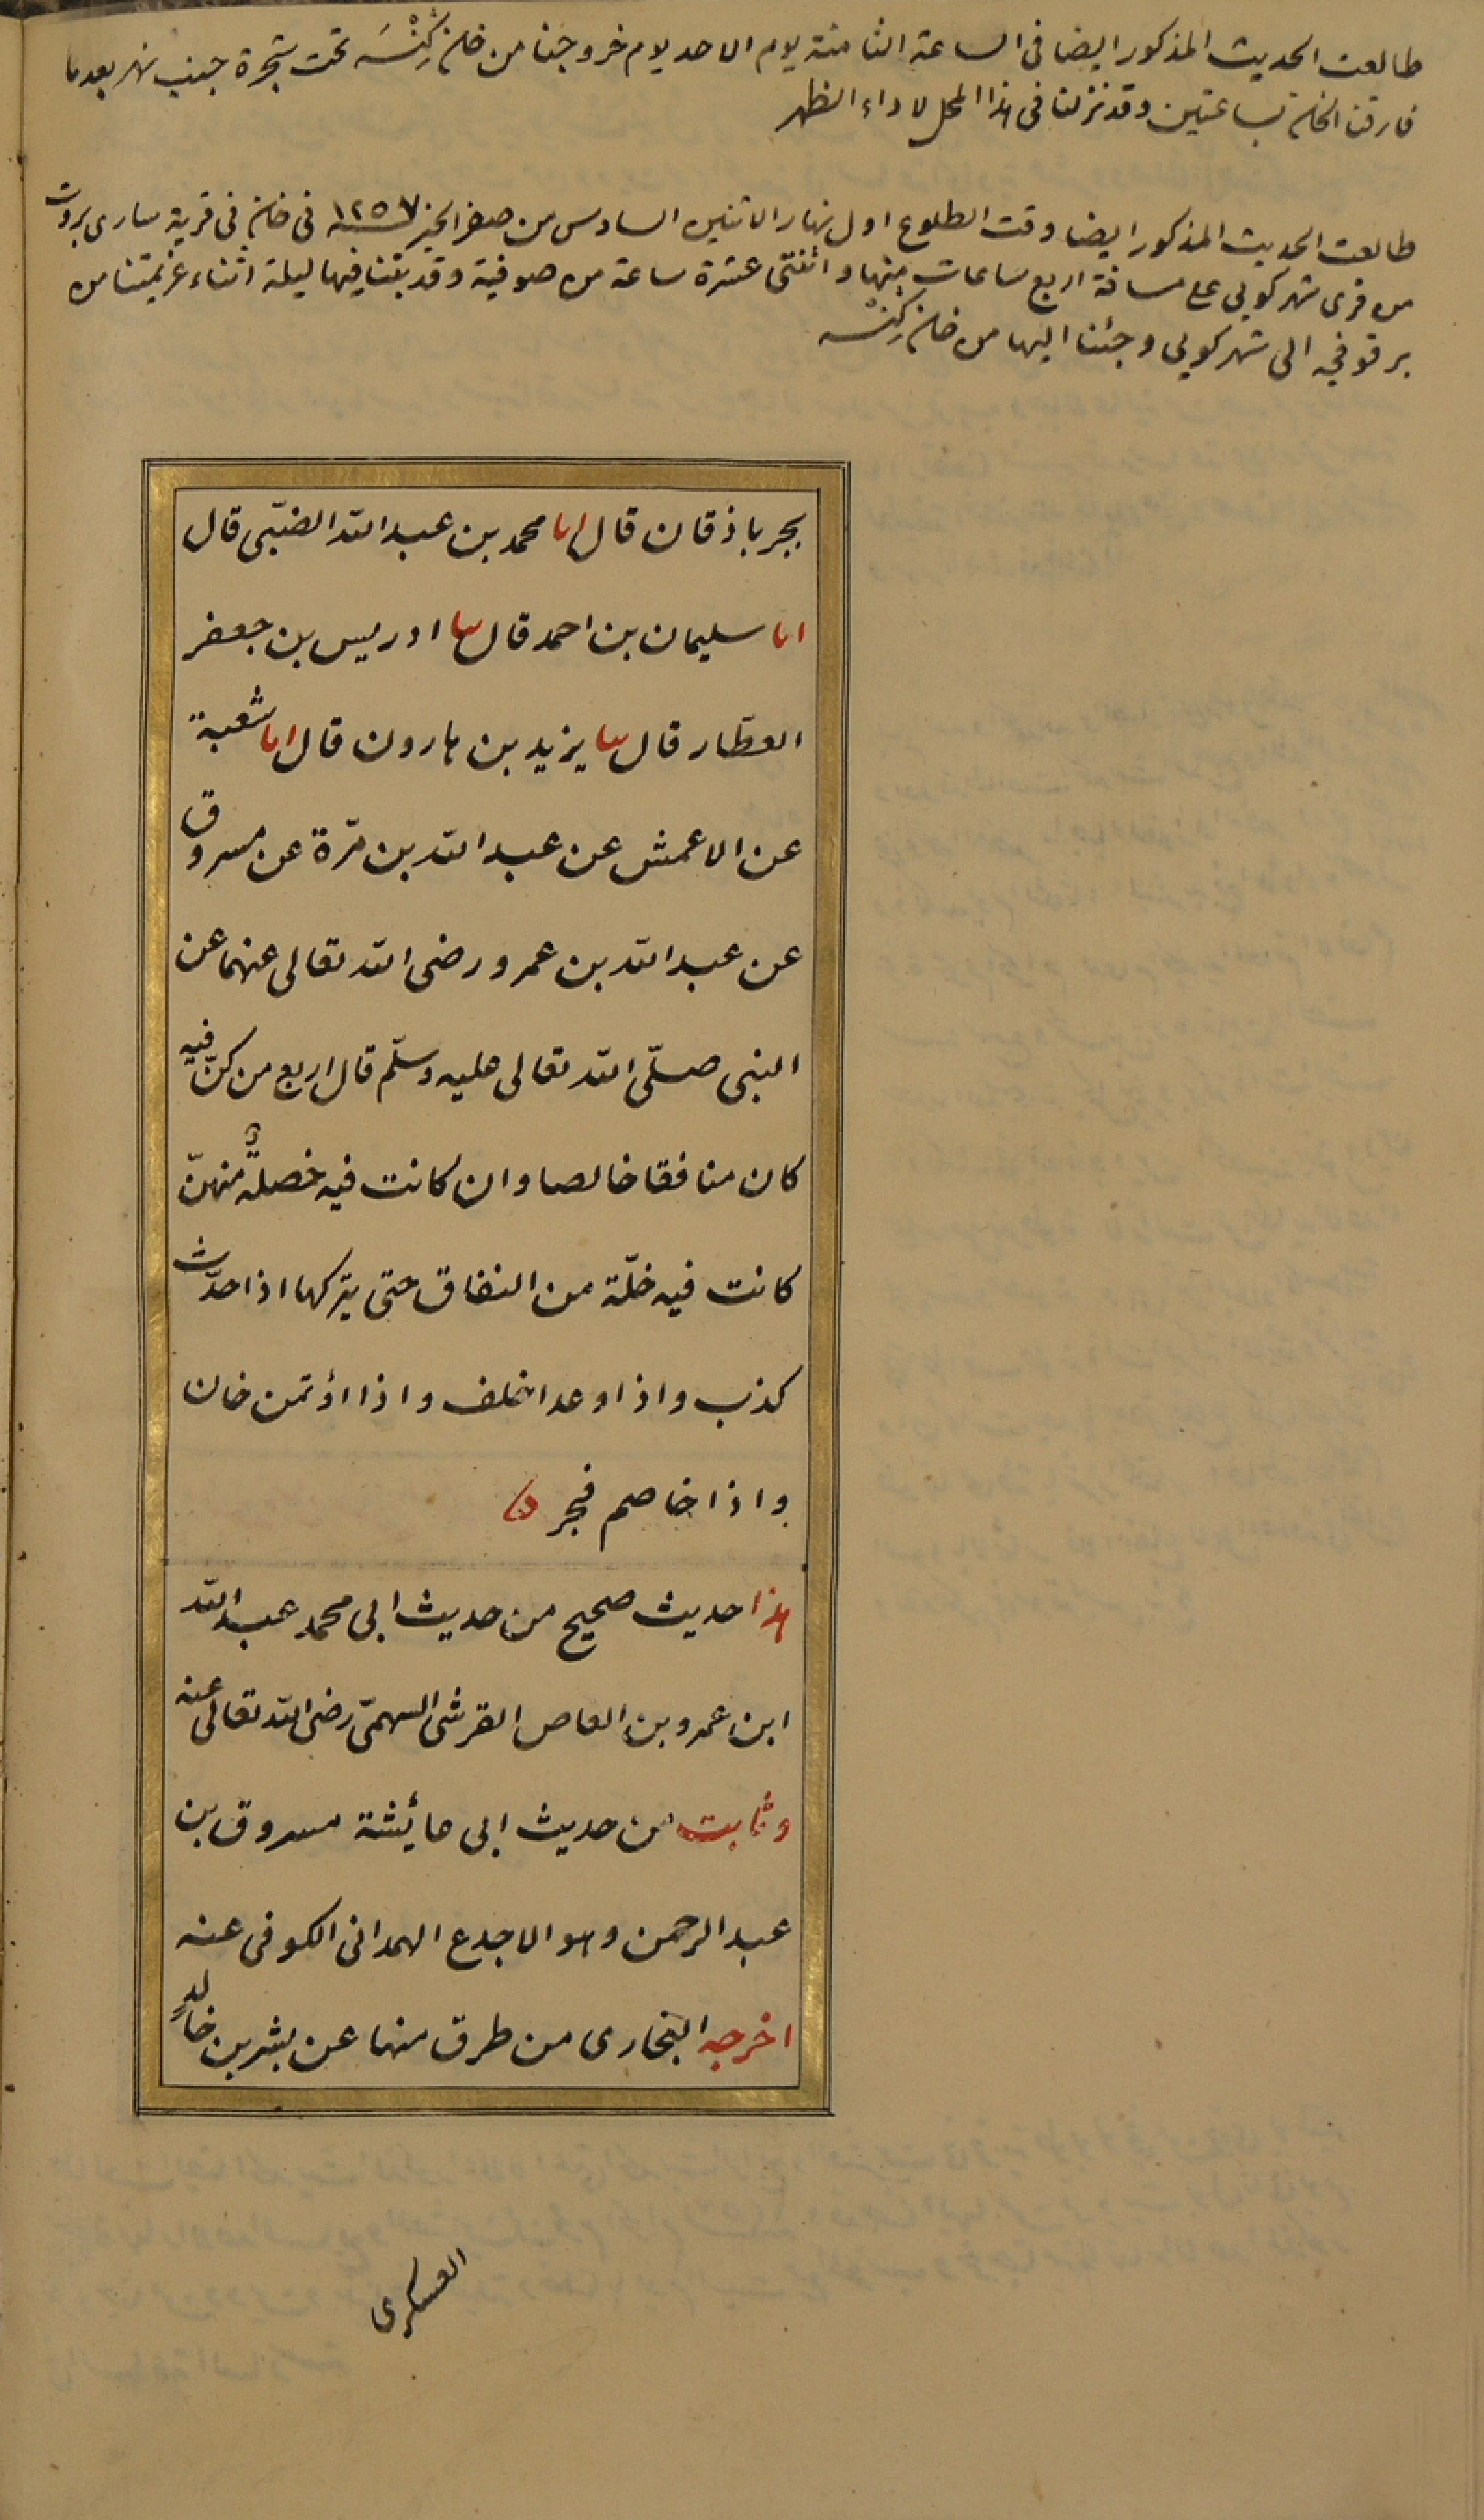 طالعت الحديث المذكور ايضا فى الساعة الثامنة يوم الاحد يوم خروجنا من خان كِنْسَه تحت شجرة جنب نهر بعد ما
فارقنا الخان بساعتين وقد نزلنا فى هذا المحل لاداء الظهر
طالعت الحديث المذكور ايضا وقت الطلوع اول نهار الاثنين السادس من صفر الخير سنة ١٢٥٧ فى خان فى قرية سارى بروت
من قرى شهر كويى على مسافة اربع ساعات منها واثنتى عشرة ساعة من صوفية وقد بتنا فيها ليلة اثناء عزيمتنا من
برقوفجه الى شهر كويى وجئنا اليها من خان كِنْسَه
بجرباذقان قال انا محمد بن عبد الله الضبّى قال
انا سليمان بن احمد قال ثنا ادريس بن جعفر
العطّار قال ثنا يزيد بن هارون قال انا شعبة
عن الاعمش عن عبد الله بن مرّة عن مسروق
عن عبد الله بن عمرو رضى الله تعالى عنهما عن
النبى صلّى الله تعالى عليه وسلّم قال اربع من كنّ فيه
كان منافقا خالصا وان كانت فيه خصلةٌ منهنّ
كانت فيه خلّة من النفاق حتى يتركها اذا حدّث
كذب واذا وعد اخلف واذا اؤتمن خان
واذا خاصم فجر ه
هذا حديث صحيح من حديث ابى محمد عبد الله
ابن عمرو بن العاص القرشى السهمّى رضى الله تعالى عنه
وثابت من حديث ابى عائشة مسروق بن
عبد الرحمن وهو الاجدع الهمدانى الكوفى عنه
اخرجه البخارى من طرق منها عن بشر بن خالدٍ
العسكرى